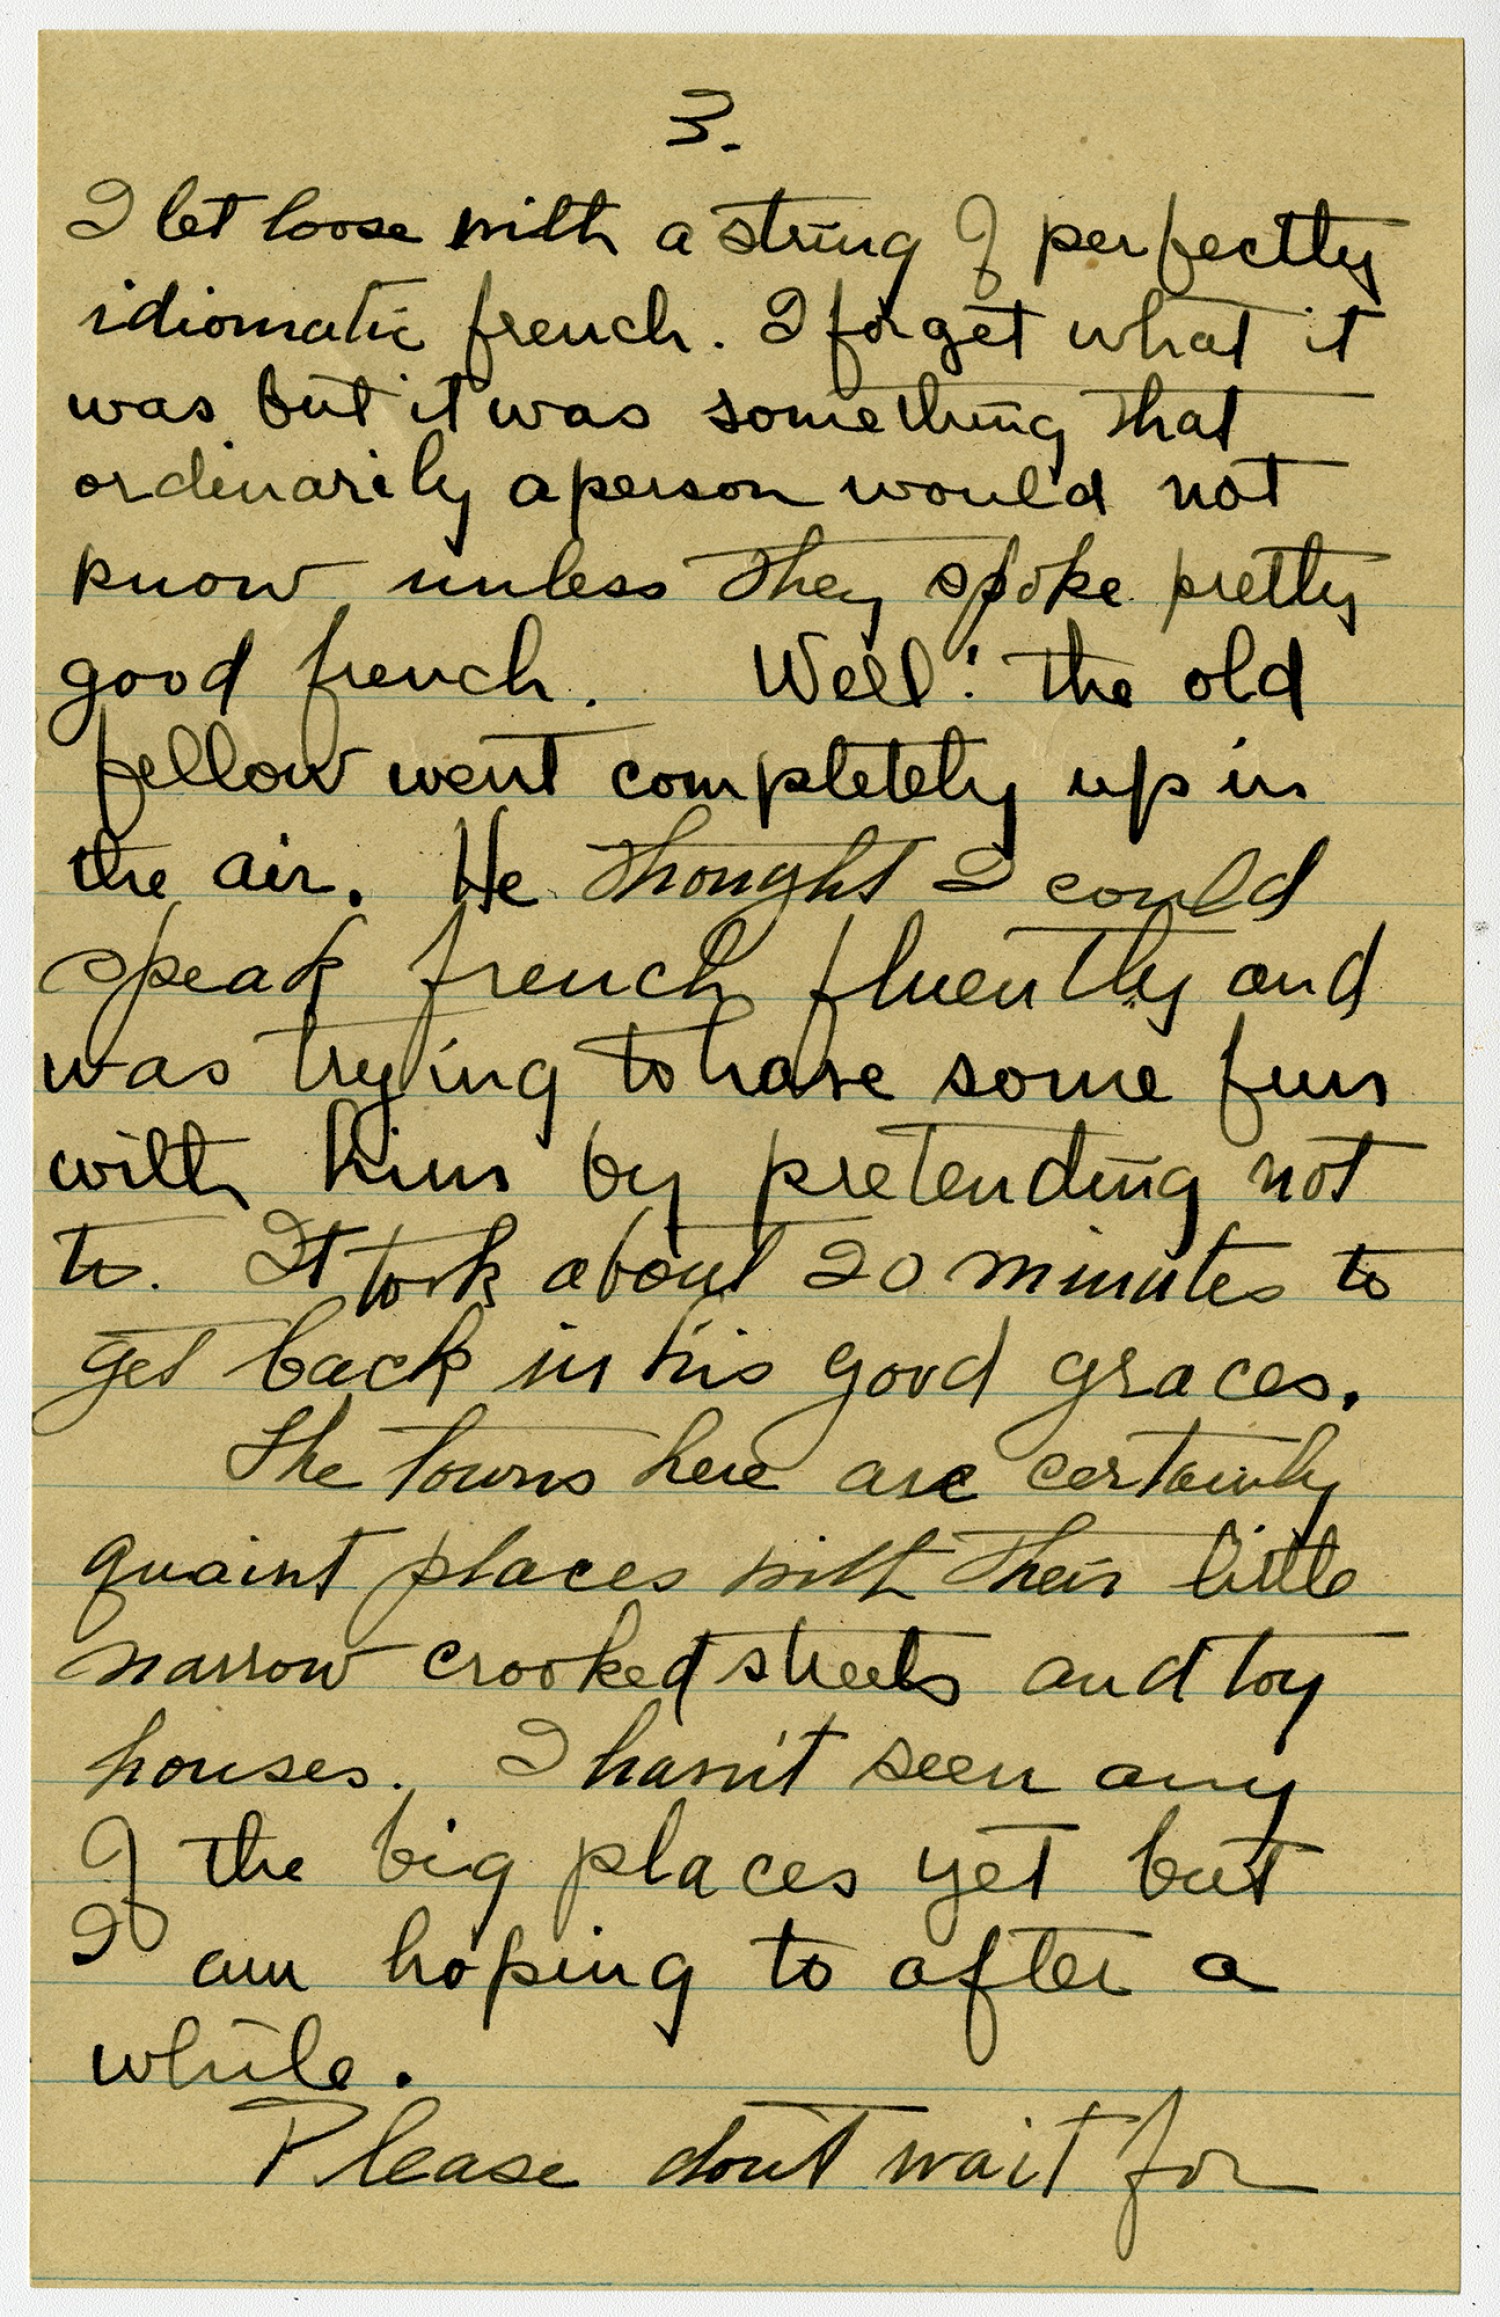 3.
I let loose with a string of perfectly
idiomatic french. I forget what it
was but it was something that
ordinarily a person would not
know unless they spoke pretty
good french. Well! the old
fellow went completely up in
the air. He thought I could
speak french fluently and
was trying to have some fun
with him by pretending not
to. It took about 20 minutes to
get back in his good graces.
The towns here are certainly
quaint places with their little
narrow crooked streets and toy
houses. I havn't seen any
of the big places yet but
I am hoping to after a
while.
Please don't wait for